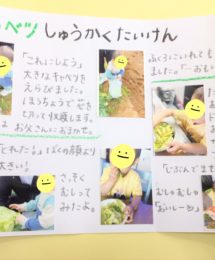 ベツ しゅうかくたいけん
「これにしよう」
大きなキャベツを
えらびました。
ほうちょうで せを
もって 収穫します。
は お父さんにおまかせ。
とれたぁ。」ぼくの顔より
大きい!
さっそく
むしって
みたよ。
ふくろにいれて も
ました。「おも
「じぶんで
むしゃむしゃ
「おいしーい